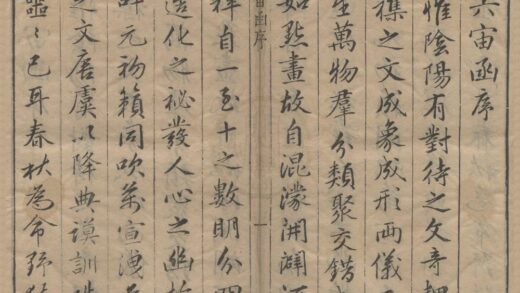 六宙函序
惟陰陽有對待之文奇耦
襍之文成象成形兩儀
生萬物羣分類聚交錯
如點畫故自混濛開闢
宙函序 一
祥自一至十之數明分
造化之秘發人心之幽故
元初籟同吹萬宣洩
之文唐虞以降典謨訓
噩〻已耳春秋為命